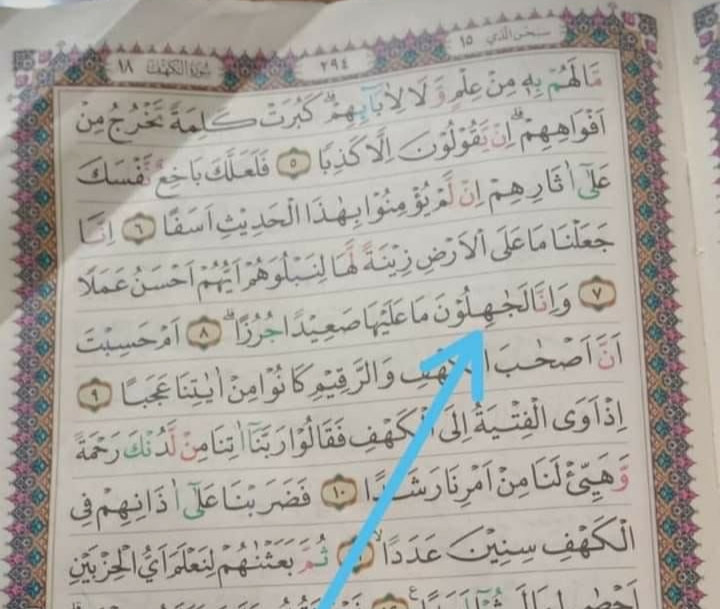 سُوْرَةُ الْكَهْفِ ١٨ ٢٩٤ سبحن الذي ١٥
مَّا لَهُمْ بِهٖ مِنْ عِلْمٍ وَّلَا لِاٰبَآىِٕهِمْۗ كَبُرَتْ كَلِمَةً تَخْرُجُ مِنْ
اَفْوَاهِهِمْۗ اِنْ يَّقُوْلُوْنَ اِلَّا كَذِبًا ٥ فَلَعَلَّكَ بَاخِعٌ نَّفْسَكَ
عَلٰٓى اٰثَارِهِمْ اِنْ لَّمْ يُؤْمِنُوْا بِهٰذَا الْحَدِيْثِ اَسَفًا ٦ اِنَّا
جَعَلْنَا مَا عَلَى الْاَرْضِ زِيْنَةً لَّهَا لِنَبْلُوَهُمْ اَيُّهُمْ اَحْسَنُ عَمَلًا
٧ وَاِنَّا لَجٰهِلُوْنَ مَا عَلَيْهَا صَعِيْدًا جُرُزًاۗ ٨ اَمْ حَسِبْتَ
اَنَّ اَصْحٰبَ الْكَهْفِ وَالرَّقِيْمِ كَانُوْا مِنْ اٰيٰتِنَا عَجَبًا ٩
اِذْ اَوَى الْفِتْيَةُ اِلَى الْكَهْفِ فَقَالُوْا رَبَّنَآ اٰتِنَا مِنْ لَّدُنْكَ رَحْمَةً
وَّهَيِّئْ لَنَا مِنْ اَمْرِنَا رَشَدًا ١٠ فَضَرَبْنَا عَلٰٓى اٰذَانِهِمْ فِى
الْكَهْفِ سِنِيْنَ عَدَدًاۙ ثُمَّ بَعَثْنٰهُمْ لِنَعْلَمَ اَيُّ الْحِزْبَيْنِ